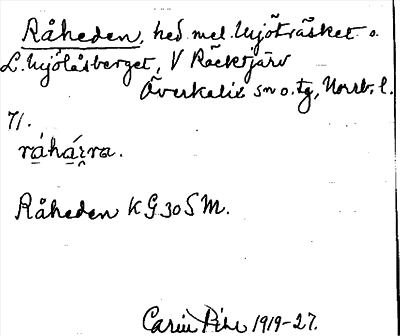 Råheden, hed mel. Mjöträsket o.
L. Mjölåsberget, V Räcktjärv
Överkalix sn o. tg, Norrb. l.
71.
Råheden KG 30 SM.
Carin Pihl 1919-27.